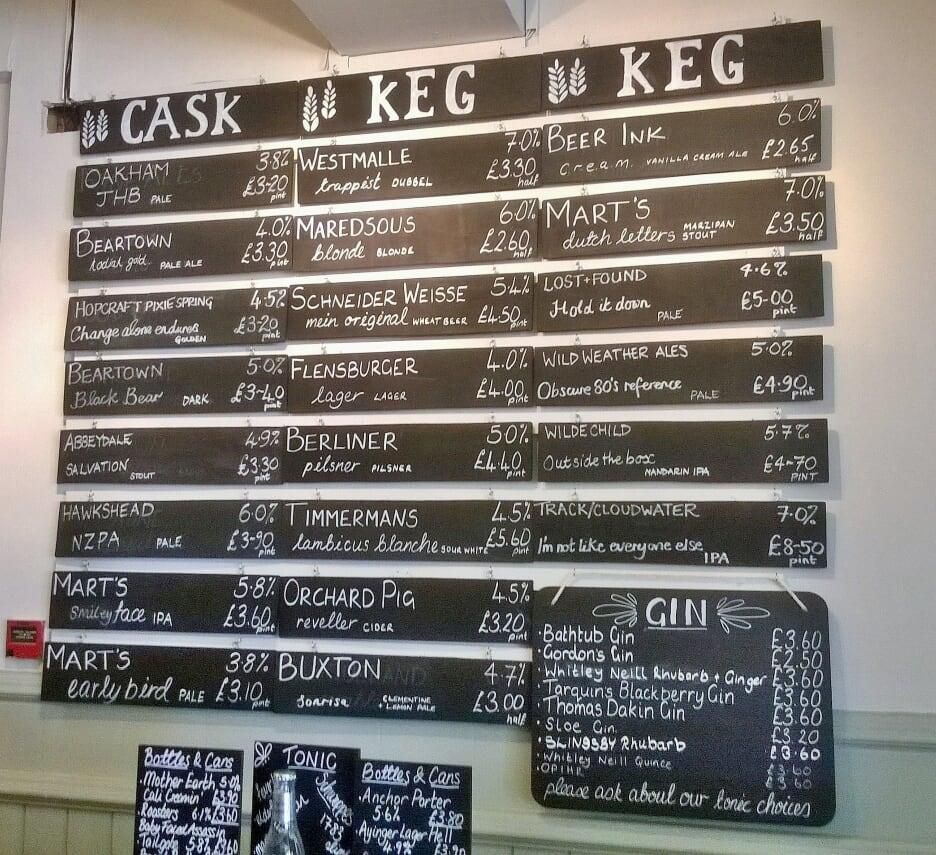 CASK
OAKHAM 3.8%
JHB PALE £3-20 pint
BEARTOWN 4.0%
PALE ALE £3.30 pint
HOPCRAFT PIXIE SPRING 4.5%
Change alone endures GOLDEN £3-20 pint
BEARTOWN 5.0%
Black Bear DARK £3-40 pint
ABBEYDALE 4.9%
SALVATION STOUT £3.30 pint
HAWKSHEAD 6.0%
NZPA PALE £3-90 pint
MART'S 5.8%
Smiley face IPA £3.60 pint
MART'S 3.8%
early bird PALE £3.10 pint
KEG
WESTMALLE 7.0%
trappist DUBBEL £3.30 half
MAREDSOUS 6.0%
blonde BLONDE £2.60 half
SCHNEIDER WEISSE 5.4%
mein original WHEAT BEER £4.50 pint
FLENSBURGER 4.0%
lager LAGER £4.00 pint
BERLINER 5.0%
pilsner PILSNER £4.40 pint
TIMMERMANS 4.5%
lambicus blanche SOUR WHITE £5.60 pint
ORCHARD PIG 4.5%
reveller CIDER £3.20 pint
BUXTON 4.7%
Sonrisa CLEMENTINE + LEMON PALE £3.00 half
KEG
BEER INK 6.0%
cream VANILLA CREAM ALE £2.65 half
MART'S 7.0%
dutch letters MARZIPAN STOUT £3.50 half
LOST+FOUND 4.6%
Hold it down PALE £5-00 pint
WILD WEATHER ALES 5.0%
Obscure 80's reference PALE £4.90 pint
WILDE CHILD 5.7%
Outside the box MANDARIN IPA £4-70 PINT
TRACK/CLOUDWATER 7.0%
I'm not like everyone else IPA £8-50 pint
GIN
·Bathtub Gin £3.60
·Gordon's Gin £2.50
·Whitley Neill Rhubarb + Ginger £3.60
·Tarquins Blackberry Gin £3.60
·Thomas Dakin Gin £3.60
·Sloe Gin £3.20
·SLINGSBY Rhubarb £3.60
·Whitley Neill Quince £3.60
·OPIHR £3.60
please ask about our tonic choices
Bottles & Cans
·Mother Earth 5.0%
Cali Creamin £3.90
·Roasters 6.1% £3.60
Baby Faced Assassin
·Tailgate 5.8% £3.60
TONIC
Bottles & Cans
·Anchor Porter
5.6% £3.80
·Ayinger Lager Hell
4.9% £3.90